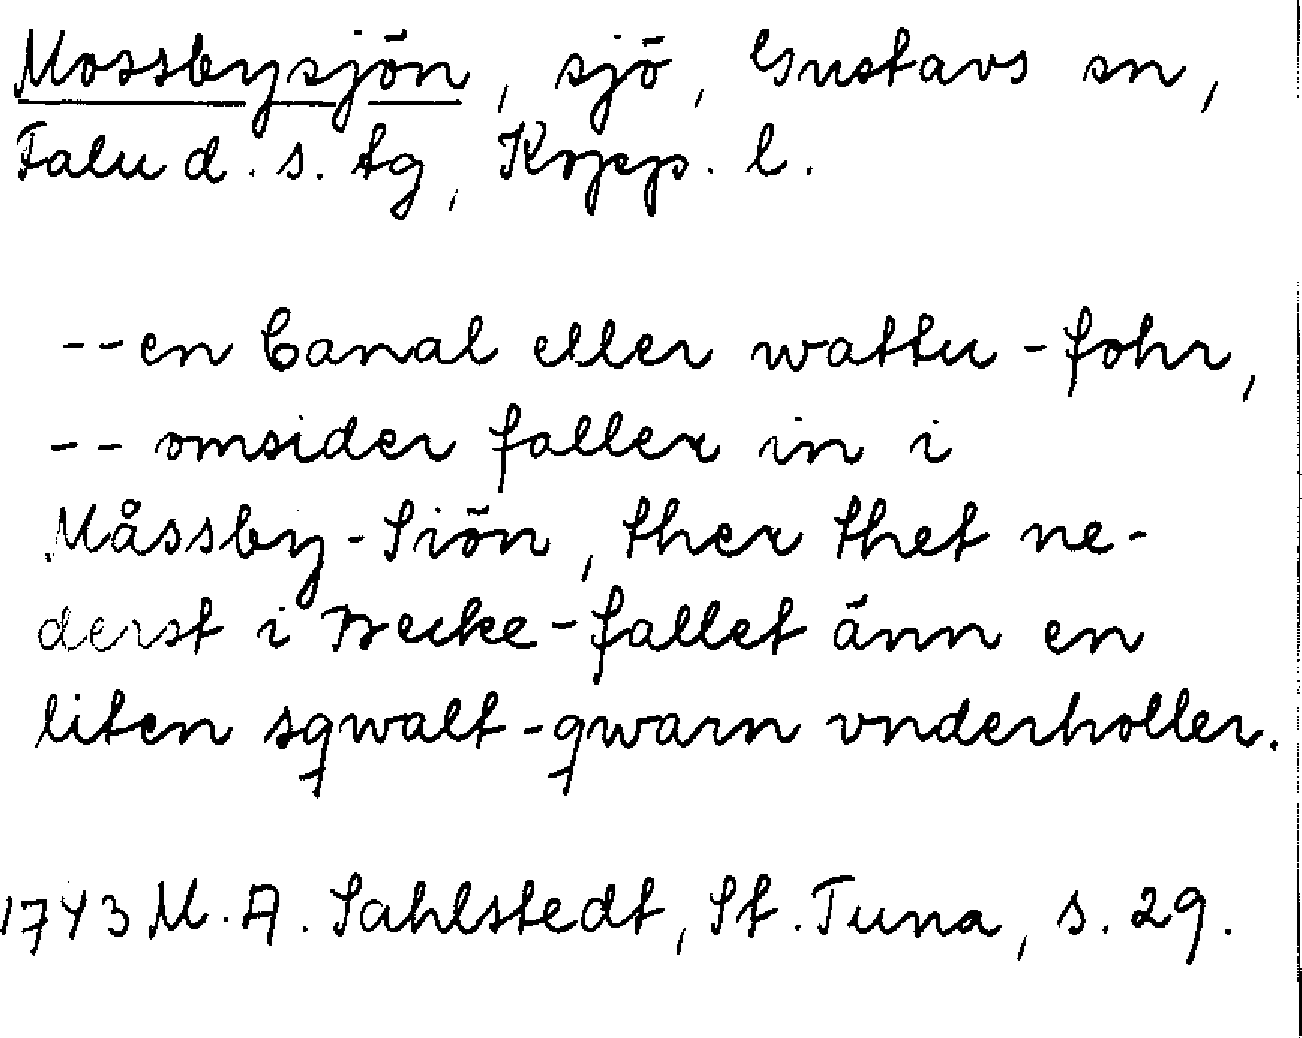 Mossbysjön, sjö, Gustavs sn,
Falu d. s. tg, Kopp. l.
--en Canal eller wattu-fohr,
-- omsider faller in i
Måssby-Siön, ther thet ne-
derst i Becke-fallet änn en
liten sqwalt-qwarn vnderholler.
1743 M. A. Sahlstedt, St. Tuna, s. 29.